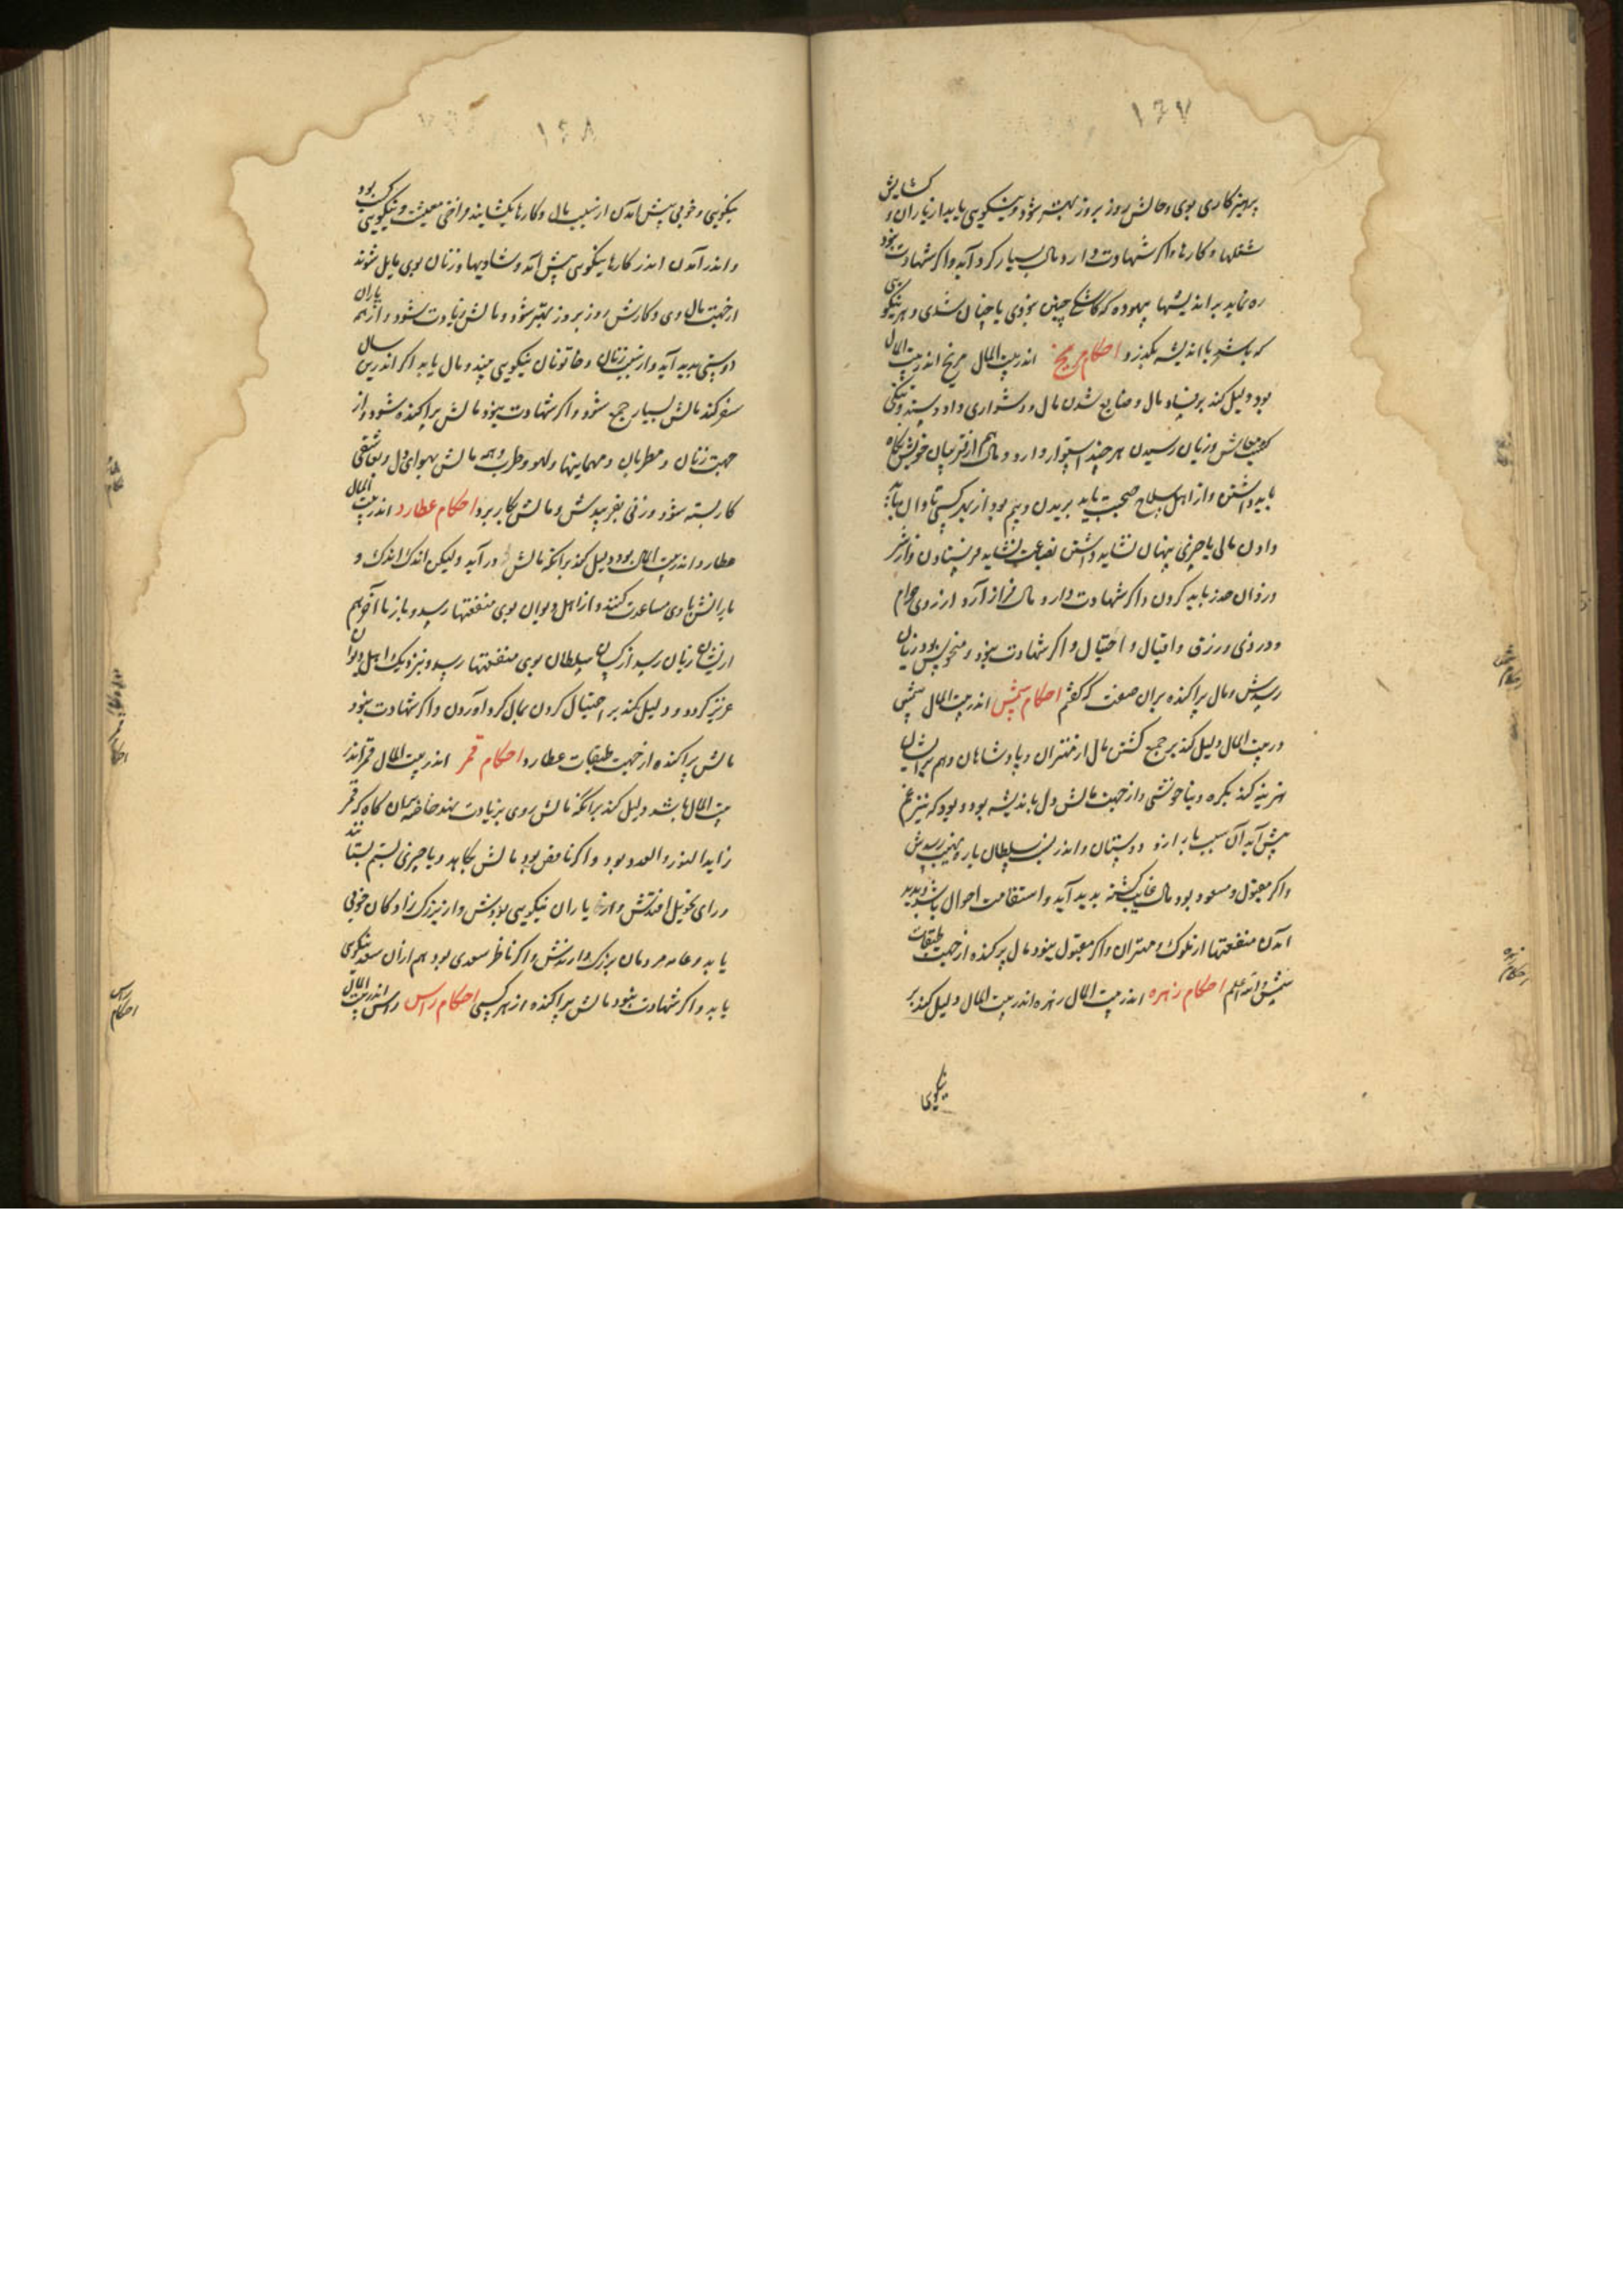 ۱۶۷
پرهیزکاری بوی و حالش روز بروز بهتر شود و نیکویی یابد از یاران و کشایش
شغلها و کارها و اکر شهادت دارد مال بسیار کرد آید و اکر شهادت نبود
ره نماید بر اندیشها بیهوده که کاشکی چنین بودی یا چنان شدی و هر نیکویی
که باشد با اندیشه بکذرد احکام مریخ اندر بیت المال مریخ اندر بیت المال
بود دلیل کند بر فساد مال و ضایع شدن مال و دشواری داد و ستد و تنکی
معاش و زیان رسیدن هر چند استوار دارد و مال هم از قریبان خویش نکاه
باید داشتن و از اهل سلاح صحبت باید بریدن و بیم بود از بهر کسی تاوان
دادن مالی یا چیزی پنهان نشاید داشتن بضاعت نشاید فرستادن و از شر
دزدان حذر باید کردن و اکر شهادت دارد مال فراز آرد از روی حرام
و دزدی و رزق و اقبال و احتیال و اکر شهادت نبود و منحوس بود زیان
رسدش و مال پراکنده بران صفت که کفتم احکام شمس اندر بیت المال شمس
در بیت المال دلیل کند بر جمع کشتن مال از مهتران و پادشاهان و هم بر ایشان
هزینه کند بکره و بناخوشی و از جهت مالش دل باندیشه بود و بود که نیز غم
پیش آید آن سبب یار از دوستان و اندر سلطان یار و نهیب رسدش
و اکر مقبول و مسعود بود مال غایب کشته بدید آید و استقامت احوال باشد و پدید
آمدن منفعتها از ملوک و مهتران و اکر مقبول نبود مال پرکنده از جهت طبقات
شمس والله اعلم احکام زهره اندر بیت المال زهره اندر بیت المال دلیل کند بر
نیکویی
احکام زهره
۱۶۸
نیکویی و خوبی پیش آمدن از سبب مال و کارها بکشایند و فراخی معیشت و نیکویی کسب بود
و اندر آمدن اندر کارها نیکویی پیش آمد و شادیها و زنان بوی مایل شوند
از جهت مال وی و کارش روز بروز بهتر شود و مالش زیادت شود و از همه یاران
دوستی پدید آید و از سبب زنان و خاتونان نیکویی بیند و مال یابد اکر اندرین سال
سفر کند مالش بسیار جمع شود و اکر شهادت نبود مالش پراکنده شود و از
جهت زنان و مطربان و مهمانیها و لهو و طرب و همه مالش بهوای دل و عاشقی
کار بسته شود و زنی بفریبدش و مالش بکار برد احکام عطارد اندر بیت المال
عطارد اندر بیت المال بود دلیل کند برانکه مالش در آید و لیکن اندک اندک و
یارانش با وی مساعدت کنند و از اهل دیوان بوی منفعتها رسد و باز با آخر هم
از ایشان زیان رسد از کسان سلطان بوی منفعتها رسد و بنزدیک اهل دیوان
عزیز کردد و دلیل کند بر احتیال کردن بمال کرد آوردن و اکر شهادت نبود
مالش پراکنده از جهت طبقات عطارد احکام قمر اندر بیت المال قمر اندر
بیت المال باشد دلیل کند برانکه مالش روی بزیادت نهد خاصه بدان کاه که قمر
زاید النور و العدد بود و اکر ناقص بود مالش بکاهد و یا چیزی بستم بستانند
و رای تحویل افتدش و از یاران نیکویی بودش و از نیز بزرک زادکان خوبی
یابد و عامه مردمان بزرک دارندش و اکر ناظر سعدی بود هم ازان سعد نیکویی
یابد و اکر شهادت نبود مالش پراکنده از هر کسی احکام راس راس اندر بیت المال
احکام راس